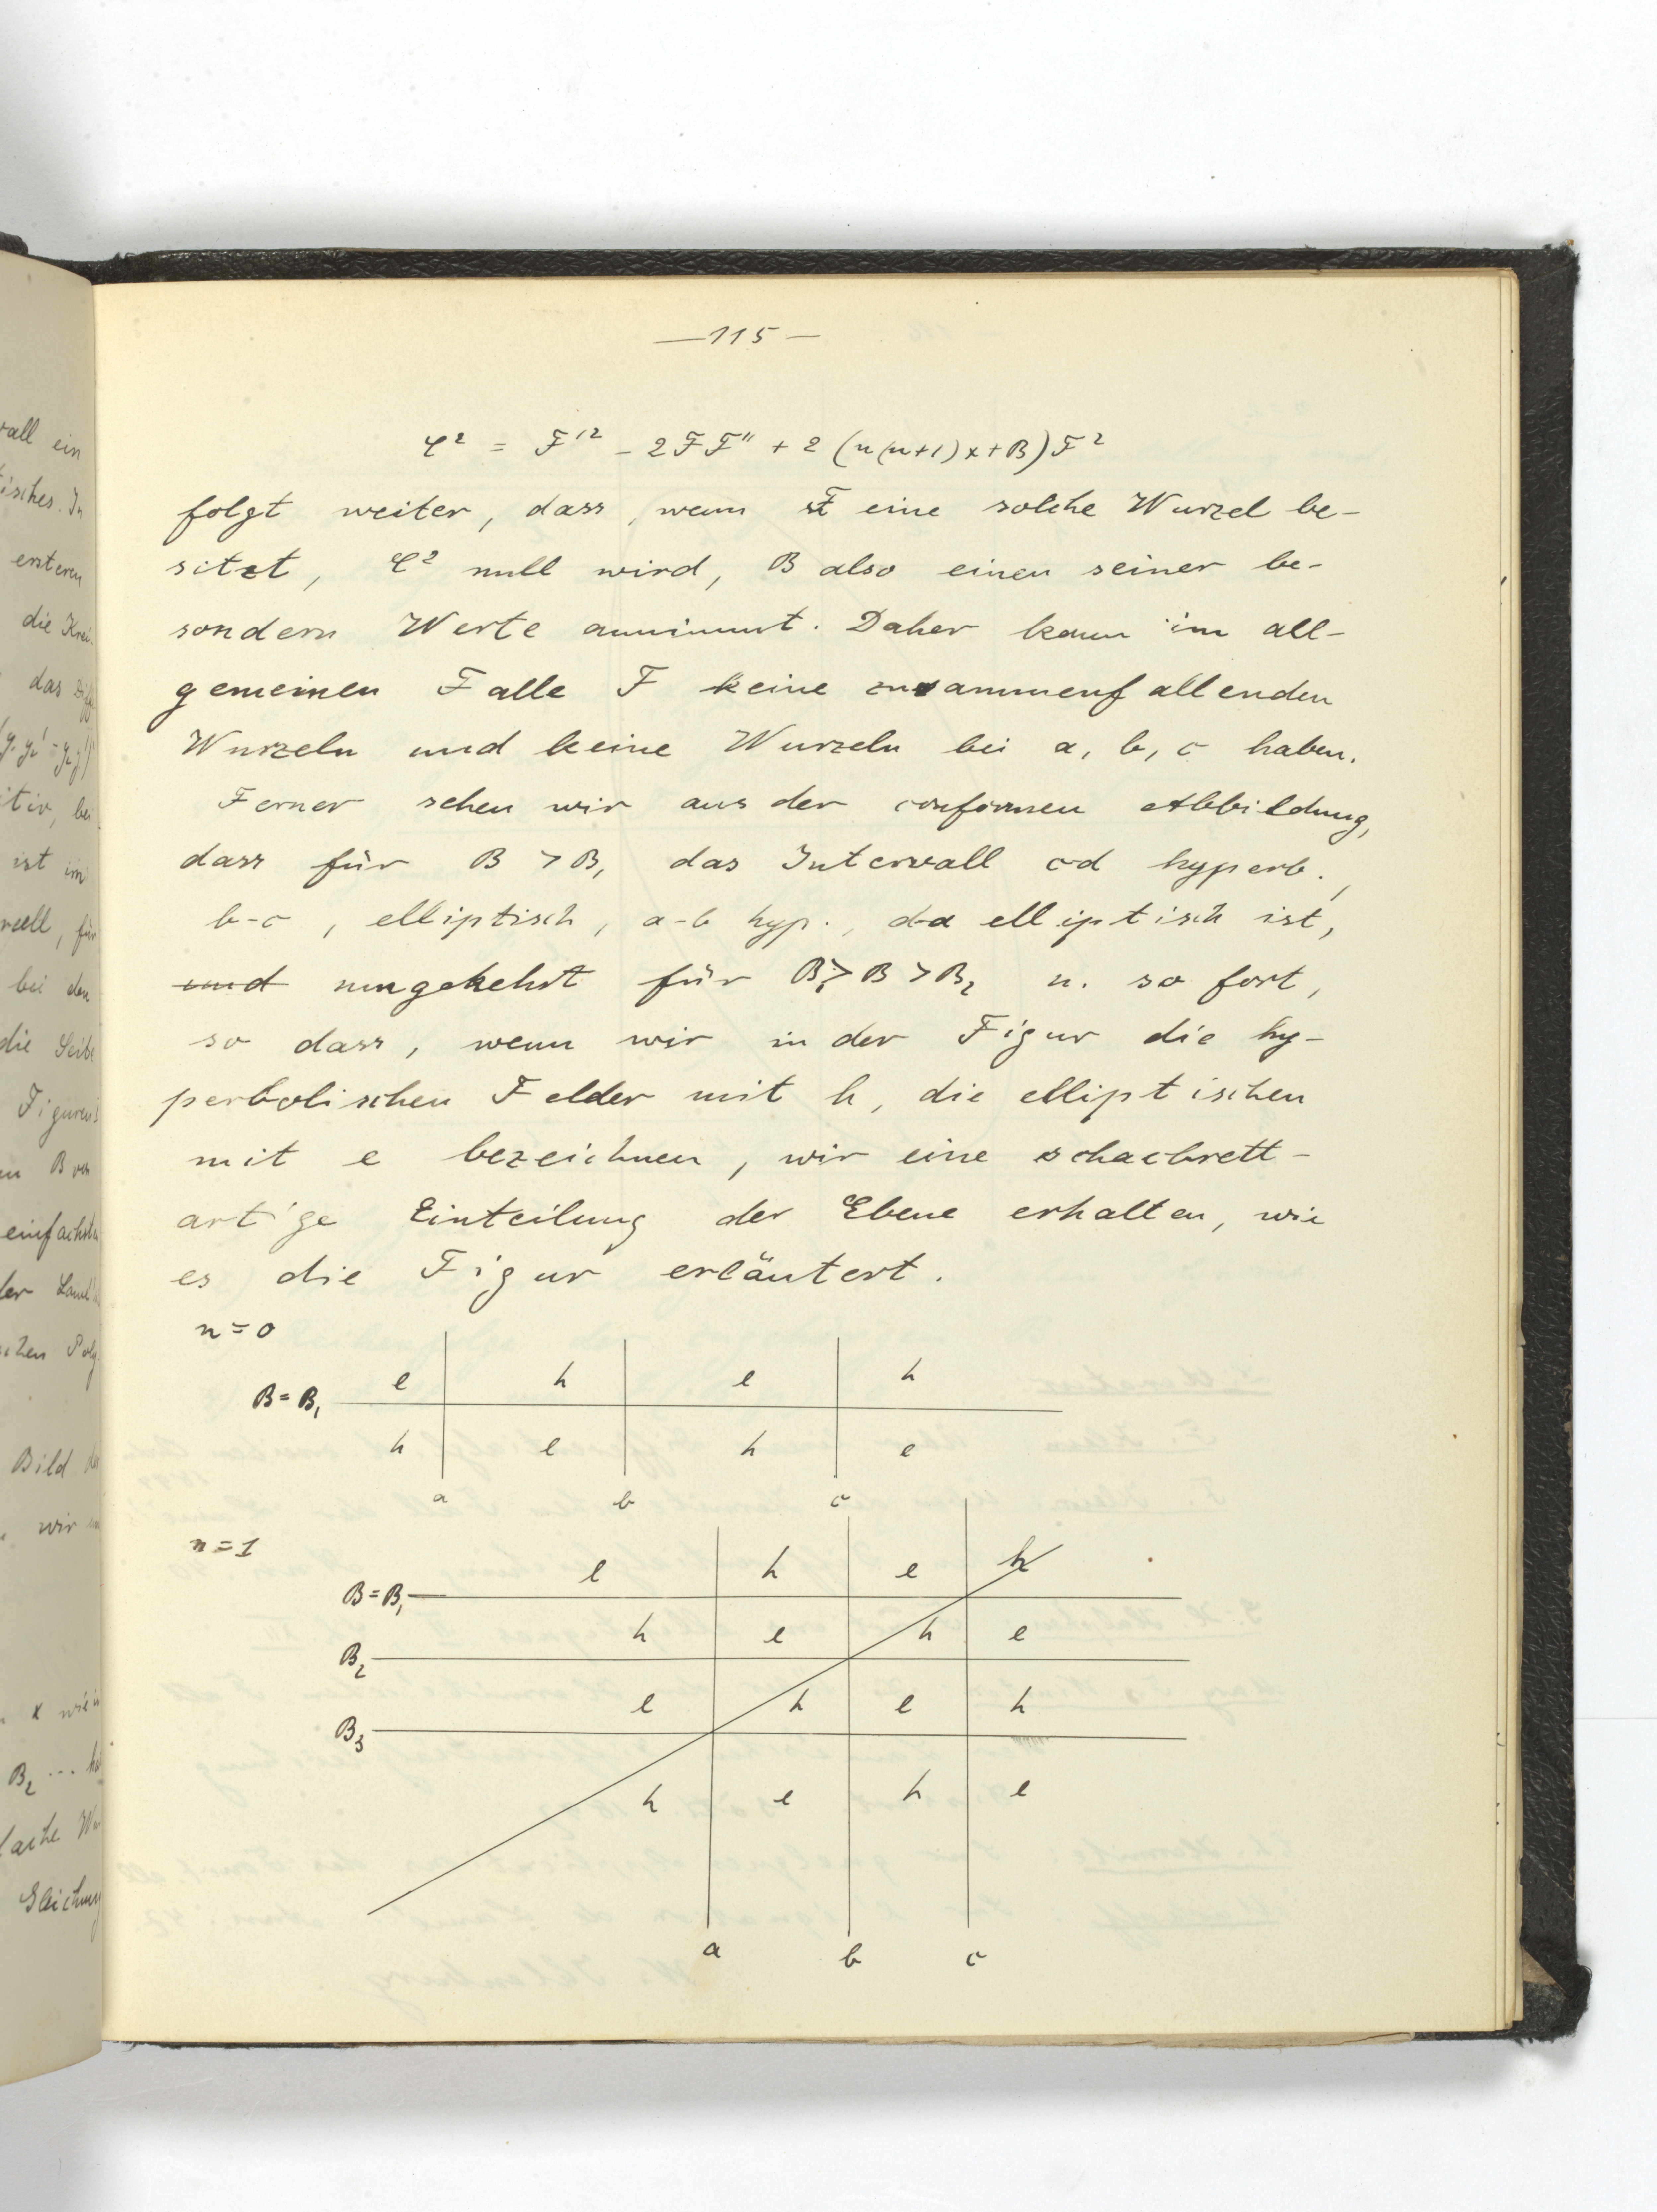 —115—
C² = F'² - 2FF'' + 2(n(n+1)x+B)F²
folgt weiter, dass, wenn F eine solche Wurzel be-
sitzt, C² null wird, B also einen seiner be-
sondern Werte annimmt. Daher kann im all-
gemeinen Falle F keine zusammenfallenden
Wurzeln und keine Wurzeln bei a, b, c haben.
Ferner sehen wir aus der conformen Abbildung,
dass für B > B₁ das Intervall cd hyperb.,
b-c, elliptisch, a-b hyp., d-a elliptisch ist,
und umgekehrt für B₁ > B > B₂ u. so fort,
so dass, wenn wir in der Figur die hy-
perbolischen Felder mit h, die elliptischen
mit e bezeichnen, wir eine schachbrett-
artige Einteilung der Ebene erhalten, wie
es die Figur erläutert.
n=0
e h e h
B=B₁
h e h e
a b c
n=1
e h e h
B=B₁
h e h e
B₂
e h e h
B₃
h e h e
a b c